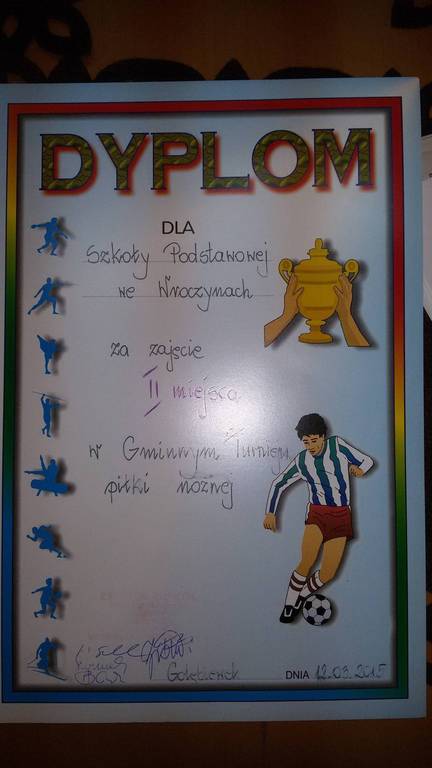 DYPLOM
DLA
Szkoły Podstawowej
we Wroczynach
za zajęcie
II miejsca
w Gminnym Turnieju
piłki nożnej
Gołębiewek DNIA 12.03.2015